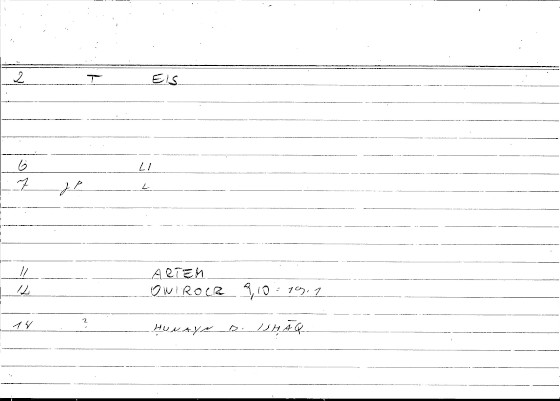 2 T EIS
6 LI
7 JP L
11 ARTEM
12 ONIROCR 9,10 = 19.1
14 ? ḤUNAYN B. ISḤĀQ